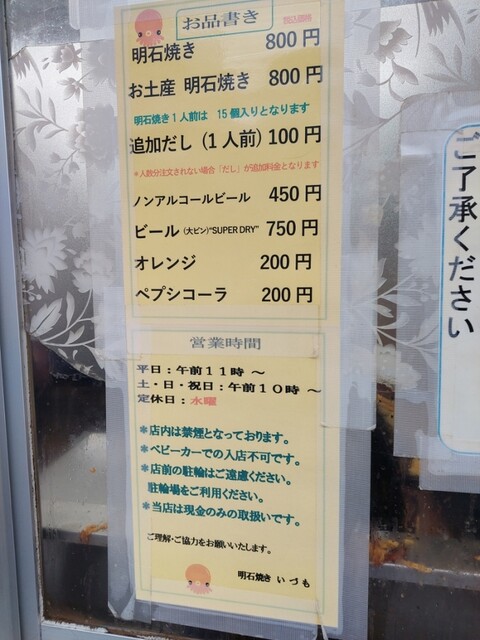 お品書き 税込価格
明石焼き 800円
お土産 明石焼き 800円
明石焼き1人前は 15個入りとなります
追加だし (1人前) 100円
*人数分注文されない場合「だし」が追加料金となります
ノンアルコールビール 450円
ビール (大ビン)"SUPER DRY" 750円
オレンジ 200円
ペプシコーラ 200円
営業時間
平日：午前11時～
土・日・祝日：午前10時～
定休日：水曜
*店内は禁煙となっております。
*ベビーカーでの入店不可です。
*店前の駐輪はご遠慮ください。
駐輪場をご利用ください。
*当店は現金のみの取扱いです。
ご理解・ご協力をお願いいたします。
明石焼き いづも
ご了承ください